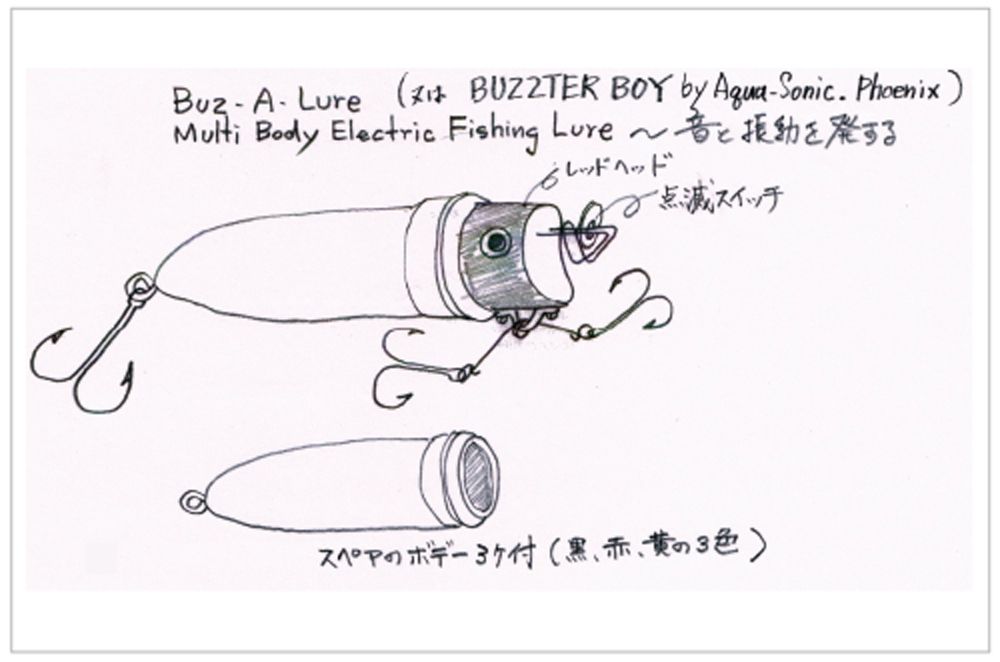 Buz-A-Lure (又は BUZZTER BOY by Aqua-Sonic. Phoenix)
Multi Body Electric Fishing Lure ～ 音と振動を発する
レッドヘッド
点滅スイッチ
スペアのボデー3ケ付(黒、赤、黄の3色)